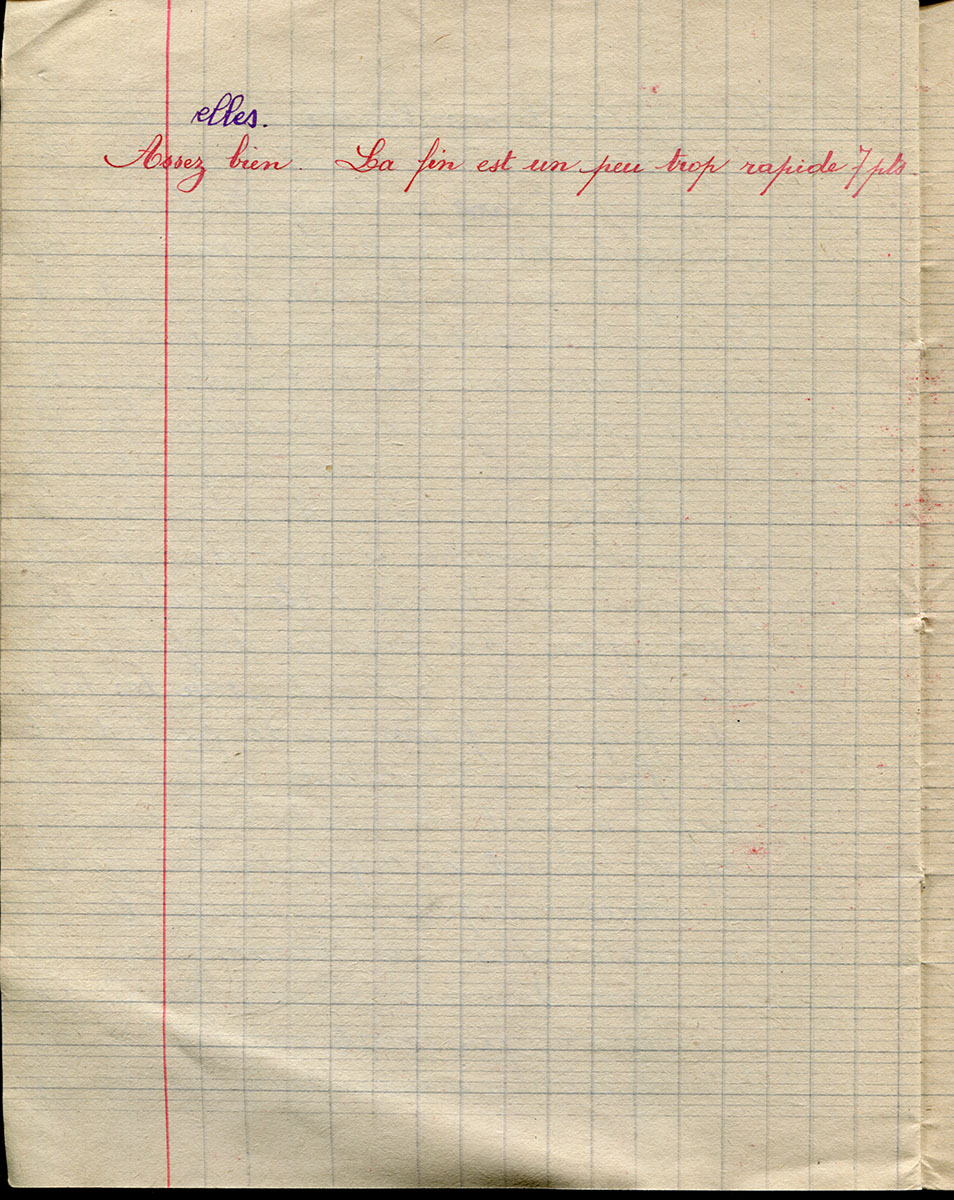 elles.
Assez bien. La fin est un peu trop rapide 7 pts